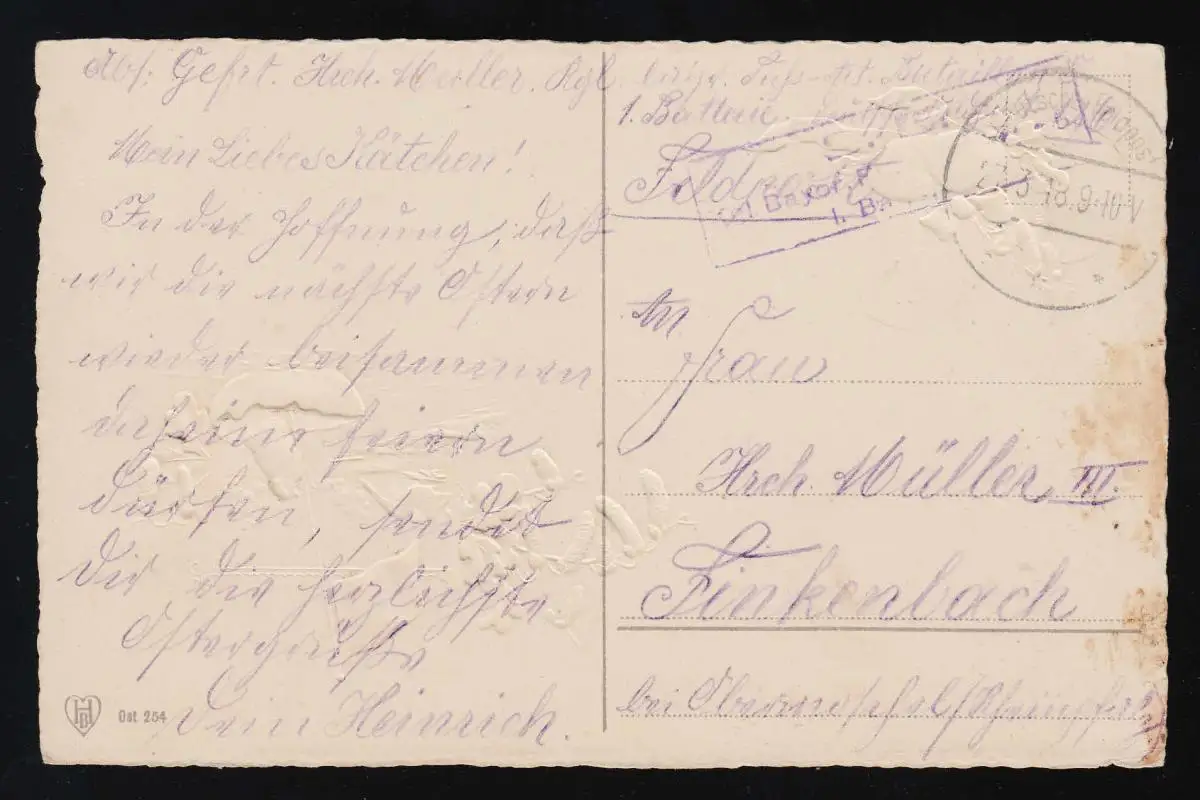 Abs: Gefrt. Hrch. Müller. Kgl. bayr. Fuß-Art. Bataillon
1. Batterie
Mein Liebes Kätchen!
In der Hoffnung, daß
wir die nächste Ostern
wieder beisammen
daheim feiern
dürfen, sendet
Dir die herzlichste
Ostergrüße
Dein Heinrich.
HD
Ost 254
Feldpost
Kgl. Bayer. F
1. Ba
3.18.9-10V
An
Frau
Hrch Müller III.
Finkenbach
bei Obermoschel/Rheinpfalz